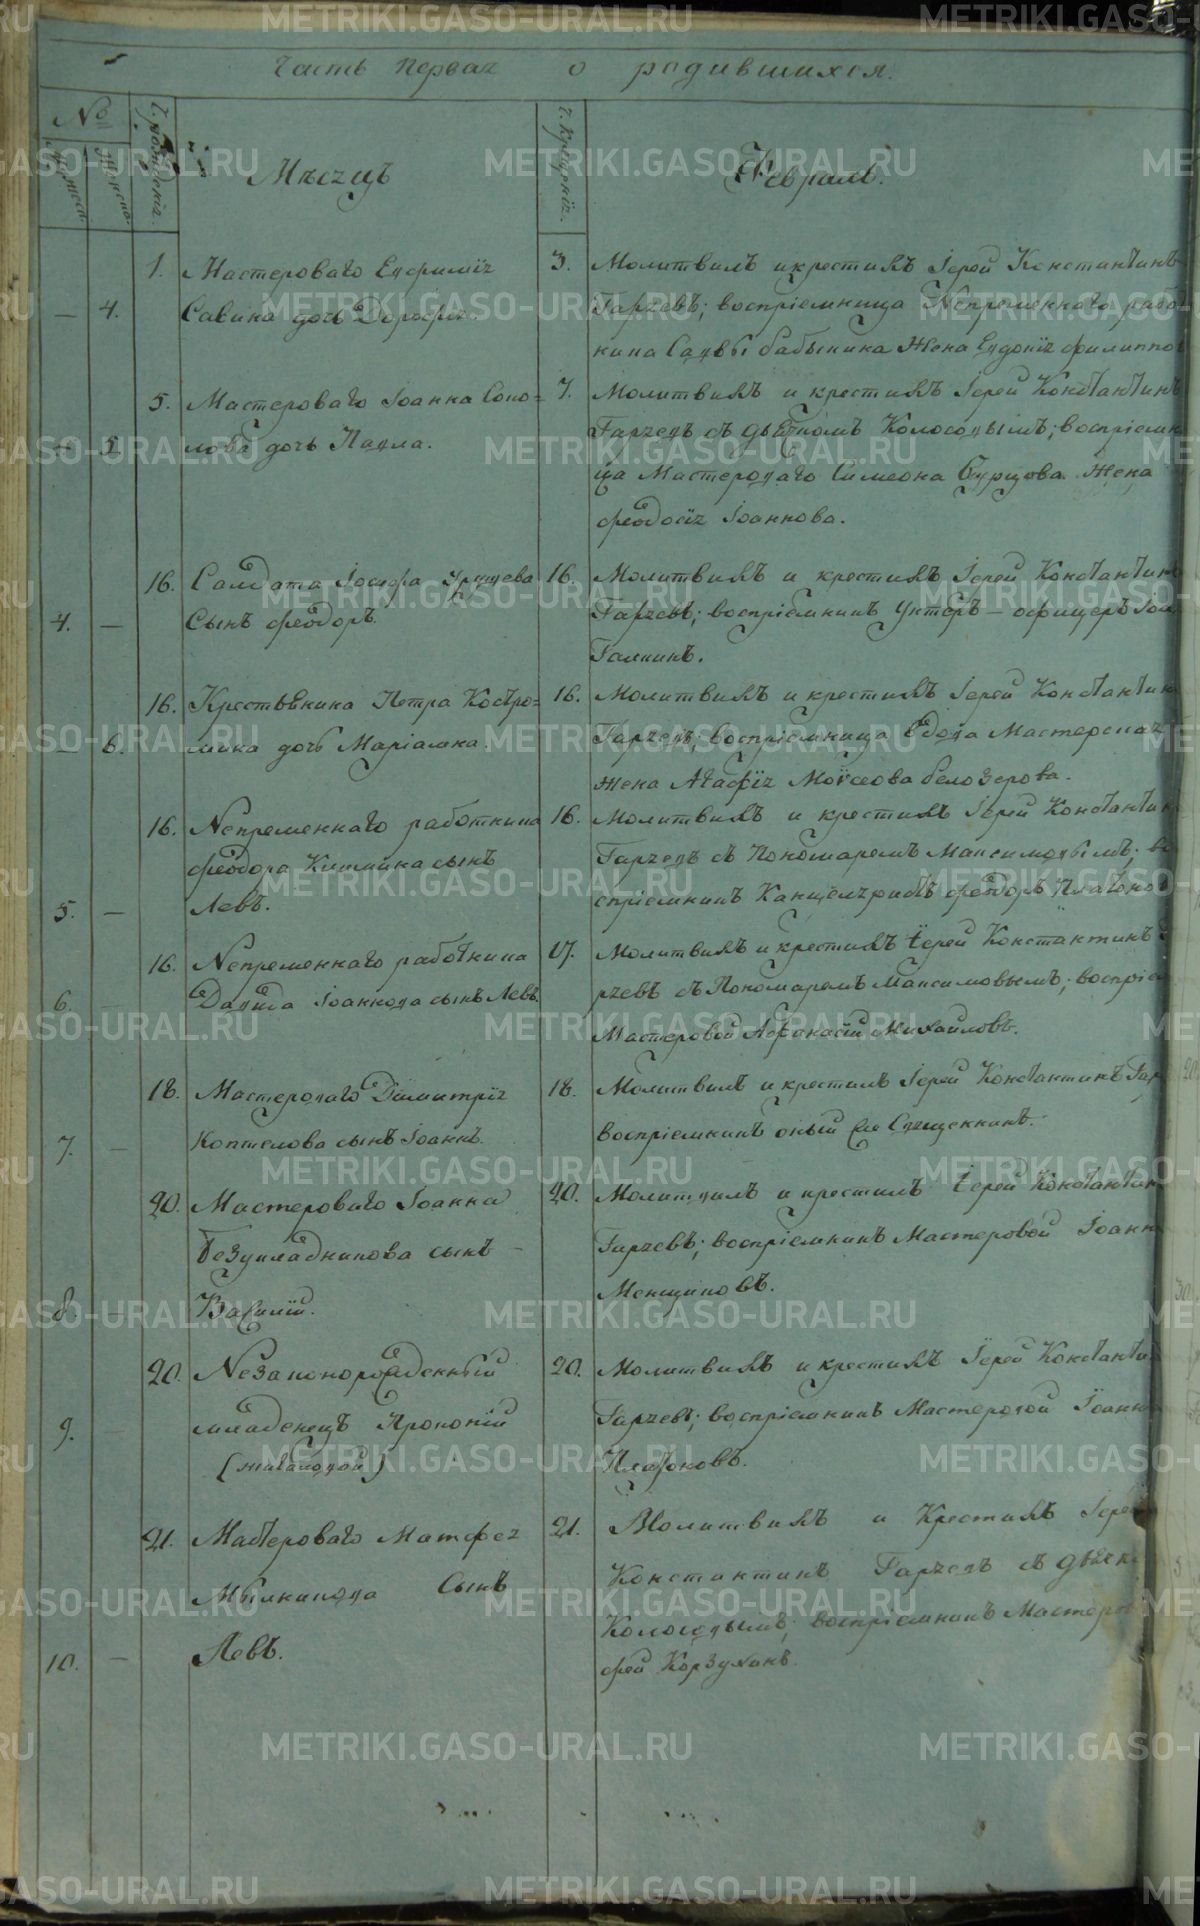 Часть первая о родившихся.
№
Мужеск.
Женска.
Ч. рожденія.
Мѣсяцъ
Ч. крещенія.
Февраль.
— 4. 1. Мастероваго Евфимія
Савина дочь
3. Молитвилъ и крестилъ Іерей Константинъ
Гаряевъ; воспріемница Непременнаго рабо
кина Саввы бабыкина Жена Евдокія филиппо
— 5. 5. Мастероваго Іоанна Соко=
лова дочь Павла.
7. Молитвилъ и крестилъ Іерей Константинъ
Гаряевъ съ дьячкомъ Колосовымъ; воспріемн
ца Мастероваго Симеона Бурцова Жена
феодосія Іоаннова.
4. — 16. Салдата Іосифа
Сынъ феодоръ.
16. Молитвилъ и крестилъ Іерей Константинъ
Гаряевъ; воспріемникъ Унтеръ — офицеръ
Галкинъ.
— 6. 16. Крестьянина Петра Костро=
мина дочь Маріамна.
16. Молитвилъ и крестилъ Іерей Константин
Гаряевъ; воспріемница вдова Мастерская
жена Агафія Моѵсеова белозерова.
5. — 16. Непременнаго работника
феодора Килина сынъ
Левъ.
16. Молитвилъ и крестилъ Іерей Константин
Гаряевъ съ Пономаремъ Максимовымъ; во
спріемникъ Канцеляристъ феодоръ Платоно
6. — 16. Непременнаго работника
Давида Іоаннова сынъ Левъ.
17. Молитвилъ и крестилъ Іерей Константинъ Г
ряевъ съ Пономаремъ Максимовымъ; воспріем
Мастеровой Афанасій Михайловъ.
7. — 18. Мастероваго Димитрія
Коптелова сынъ Іоаннъ.
18. Молитвилъ и крестилъ Іерей Константинъ Гар
воспріемникъ оный же Священникъ.
8. — 20. Мастероваго Іоанна
Безукладникова сынъ —
Василій.
20. Молитвилъ и крестилъ Іерей Константин
Гаряевъ; воспріемникъ Мастеровой Іоанн
Менщиковъ.
9. — 20. Незаконорожденный
младенецъ Прокопій
20. Молитвилъ и крестилъ Іерей Константи
Гаряевъ; воспріемникъ Мастеровой Іоанн
Платоновъ.
10. — 21. Мастероваго Матфея
Мылникова Сынъ
Левъ.
21. Молитвилъ и Крестилъ Іерей
Константинъ Гаряевъ съ дьячко
Колосовымъ; воспріемникъ Мастеров
фей Корзунинъ.
METRIKI.GASO-URAL.RU